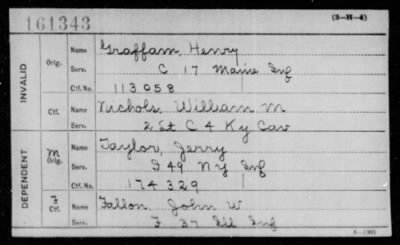 161343
(3-H-4)
INVALID
Orig.
Name Graffam, Henry
Serv. C 17 Maine Inf
Ctf. No. 113058
Ctf.
Name Nichols, William M
Serv. 2 Lt C 4 Ky Cav
DEPENDENT
M
Orig.
Name Taylor, Jerry
Serv. I 49 NY Inf
Ctf. No. 174329
Ctf.
Name Fallon, John W
Serv. F 37 Ill Inf